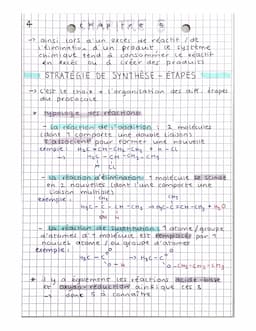 4
CHAPITRE 5
→ ainsi lors d'un excès de réactif / de
l'élimination d'un produit, le système
chimique tend à consommer le réactif
en excès ou à créer des produits
STRATÉGIE DE SYNTHÈSE - ÉTAPES
→ C'est le choix + l'organisation des diff. étapes
du protocole
* typologie des réactions
- la réaction d'addition : 2 molécules
(dont 1 comporte une double liaison)
s'associent pour former une nouvelle
exemple : H₂C=CH-CH₂-CH₃ + H-Cl
→ H₂C-CH-CH₂-CH₃
H Cl
- la réaction d'élimination : 1 molécule se scinde
en 2 nouvelles (dont l'une comporte une
liaison multiple)
exemple :
- la réaction de substitution : 1 atome/groupe
d'atomes d'1 molécule est remplacés par 1
nouvel atome / ou groupe d'atomes
exemple :
* il y a également les réactions acide-base
et oxydo-réduction ainsi que les 3
→ donc 5 à connaître